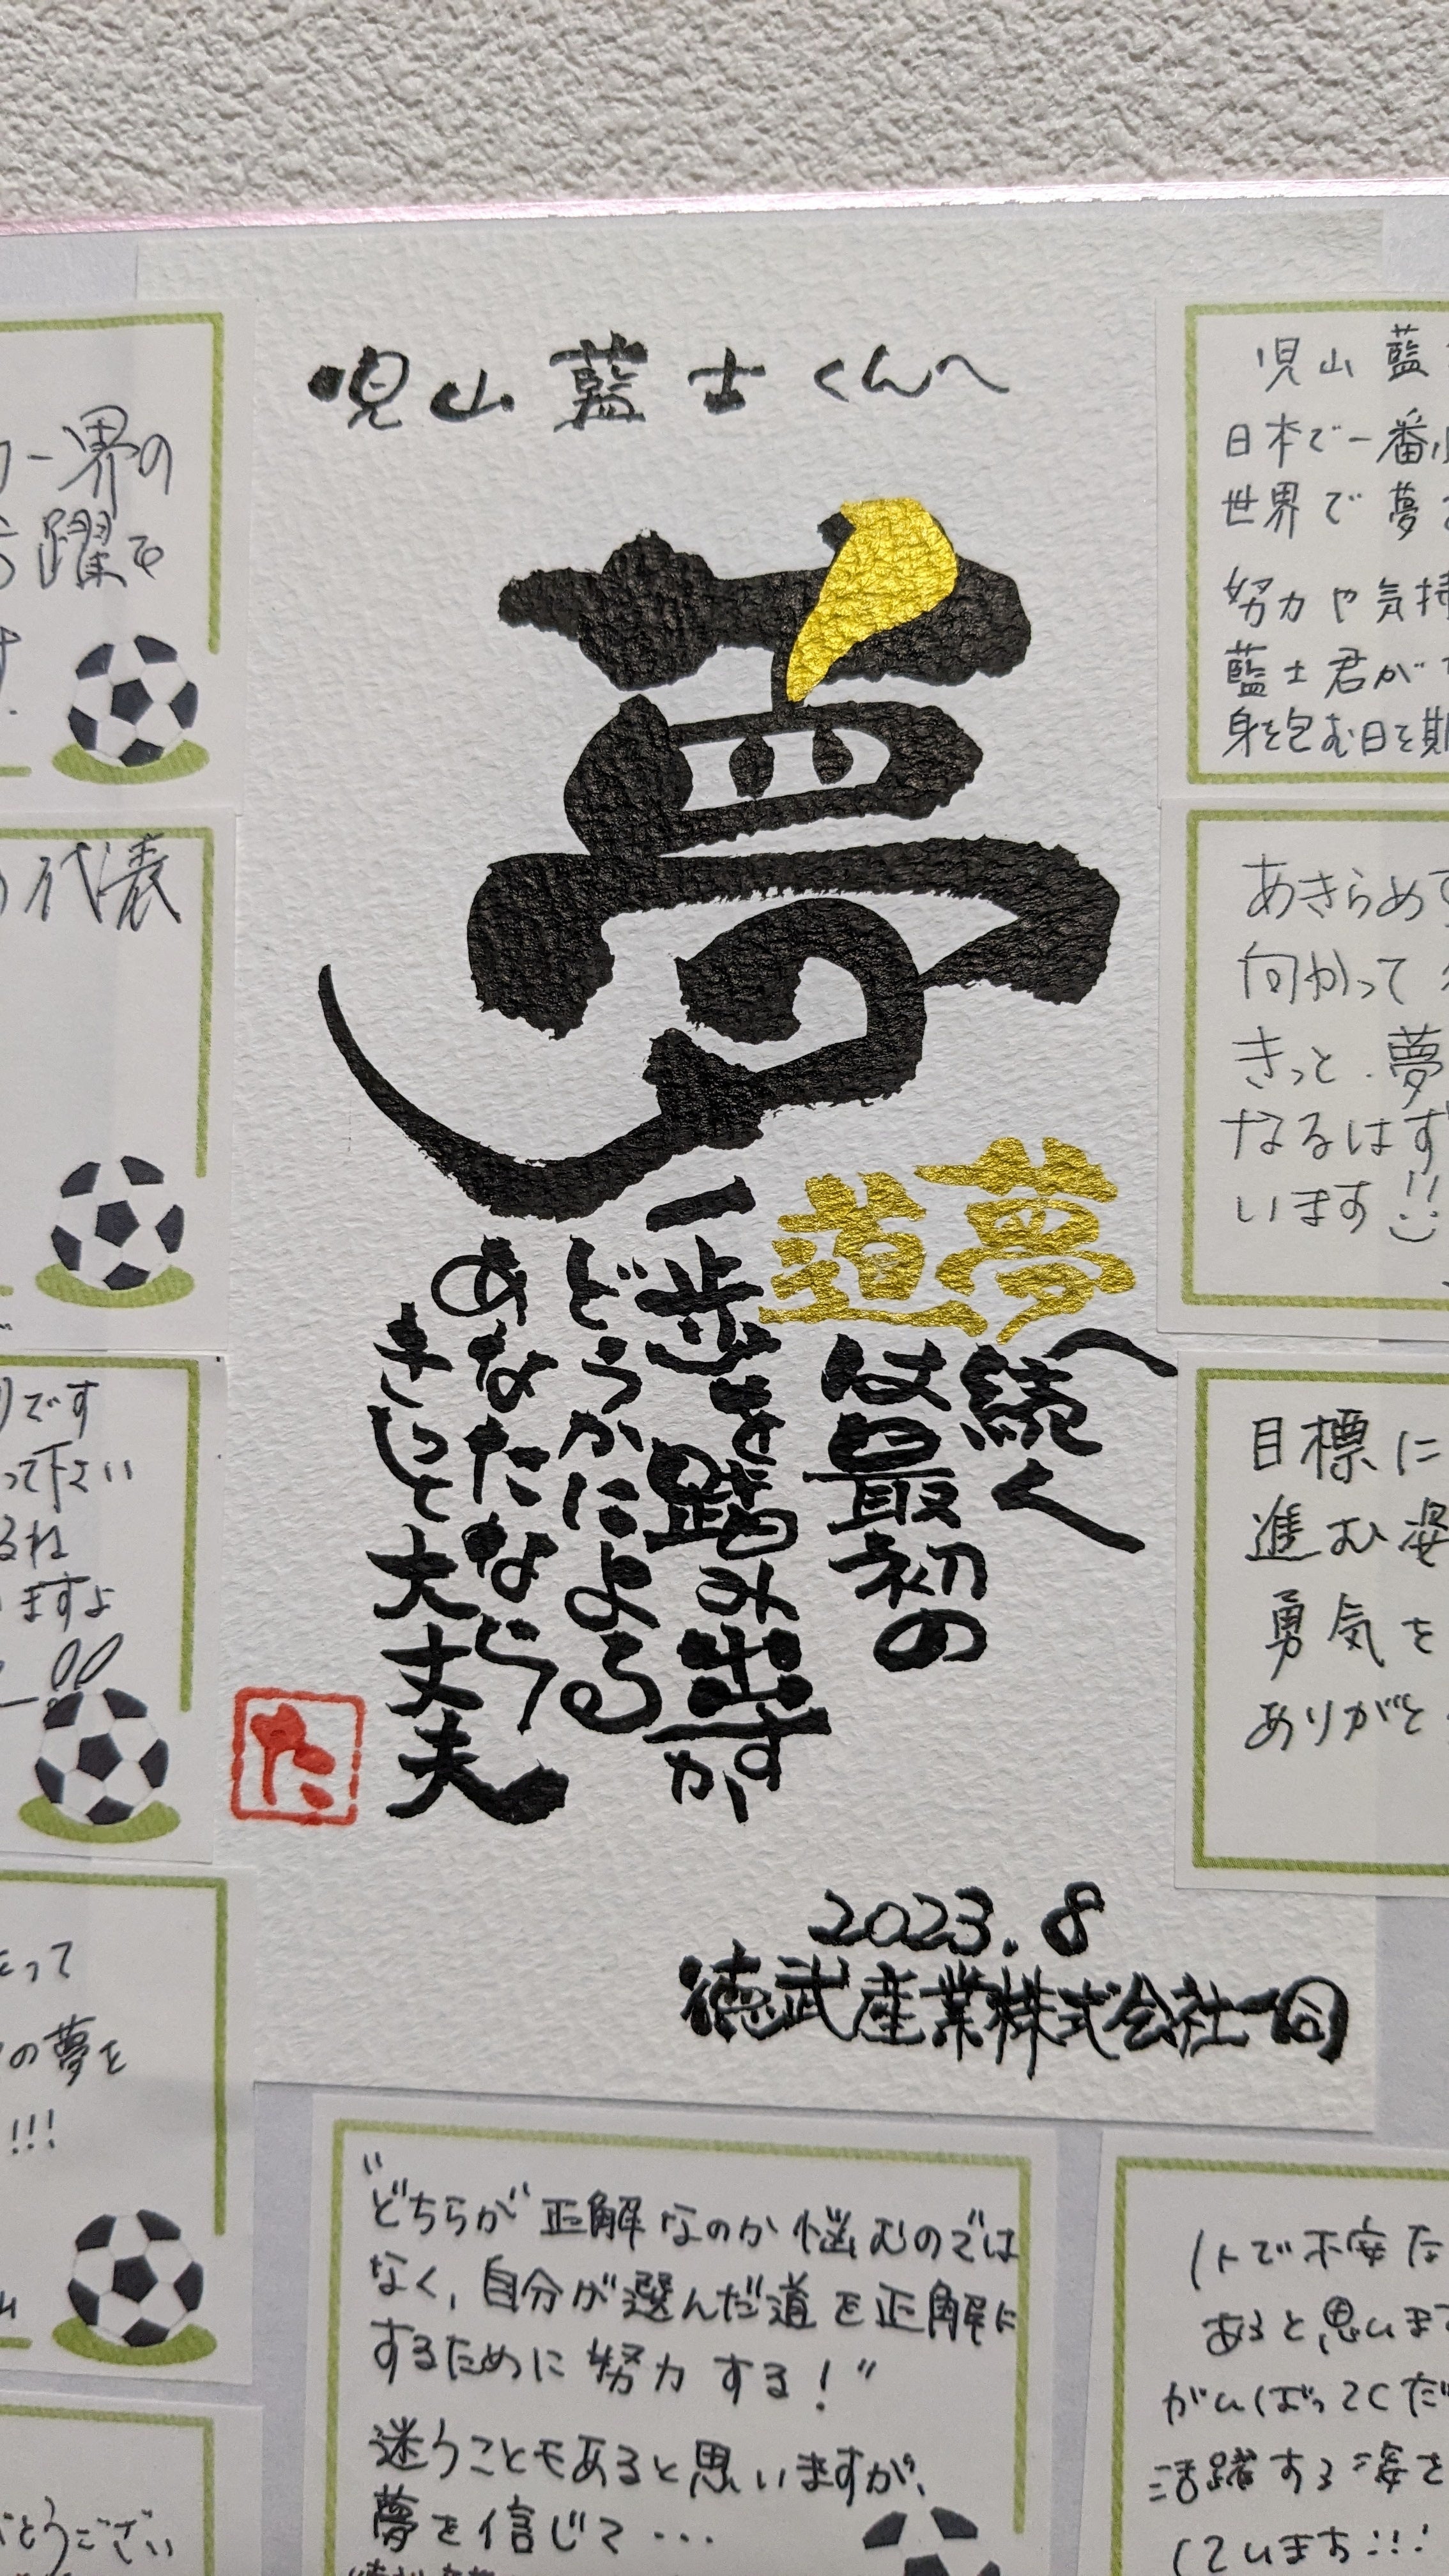 児山藍士くんへ
夢
夢へ続く
道は最初の
一歩を踏み出すか
どうかによる
あなたなら
きっと大丈夫
た
2023.8
徳武産業株式会社一同
界の
躍を
代表
です
って下さい
るね
ますよ
!!
って
の夢を
!!!
とうござい
児山 藍
日本で一番
世界で夢
努力や気持
藍士君が
身を包む日を期
あきらめず
向かって
きっと、夢
なるはず
います!!
目標に
進む姿
勇気を
ありがと
"どちらが正解なのか悩むのでは
なく、自分が選んだ道を正解に
するために努力する!"
迷うこともあると思いますが、
夢を信じて...
1人で不安な
あると思いま
がんばってくだ
活躍する姿を
しています!!!